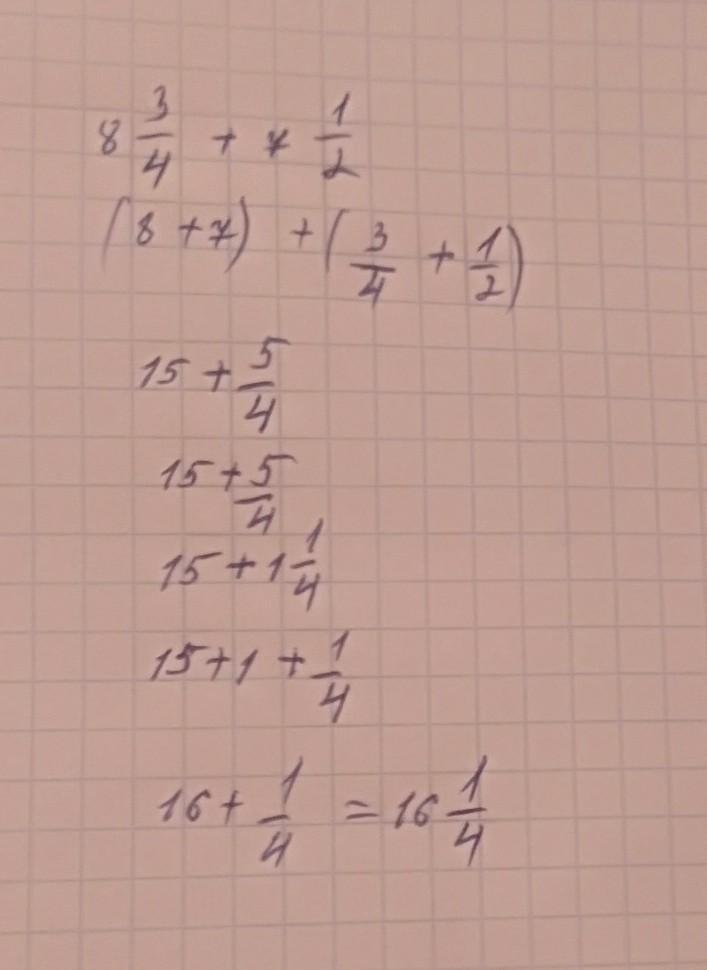 8 3/4 + 7 1/2
(8 + 7) + (3/4 + 1/2)
15 + 5/4
15 + 5/4
15 + 1 1/4
15 + 1 + 1/4
16 + 1/4 = 16 1/4